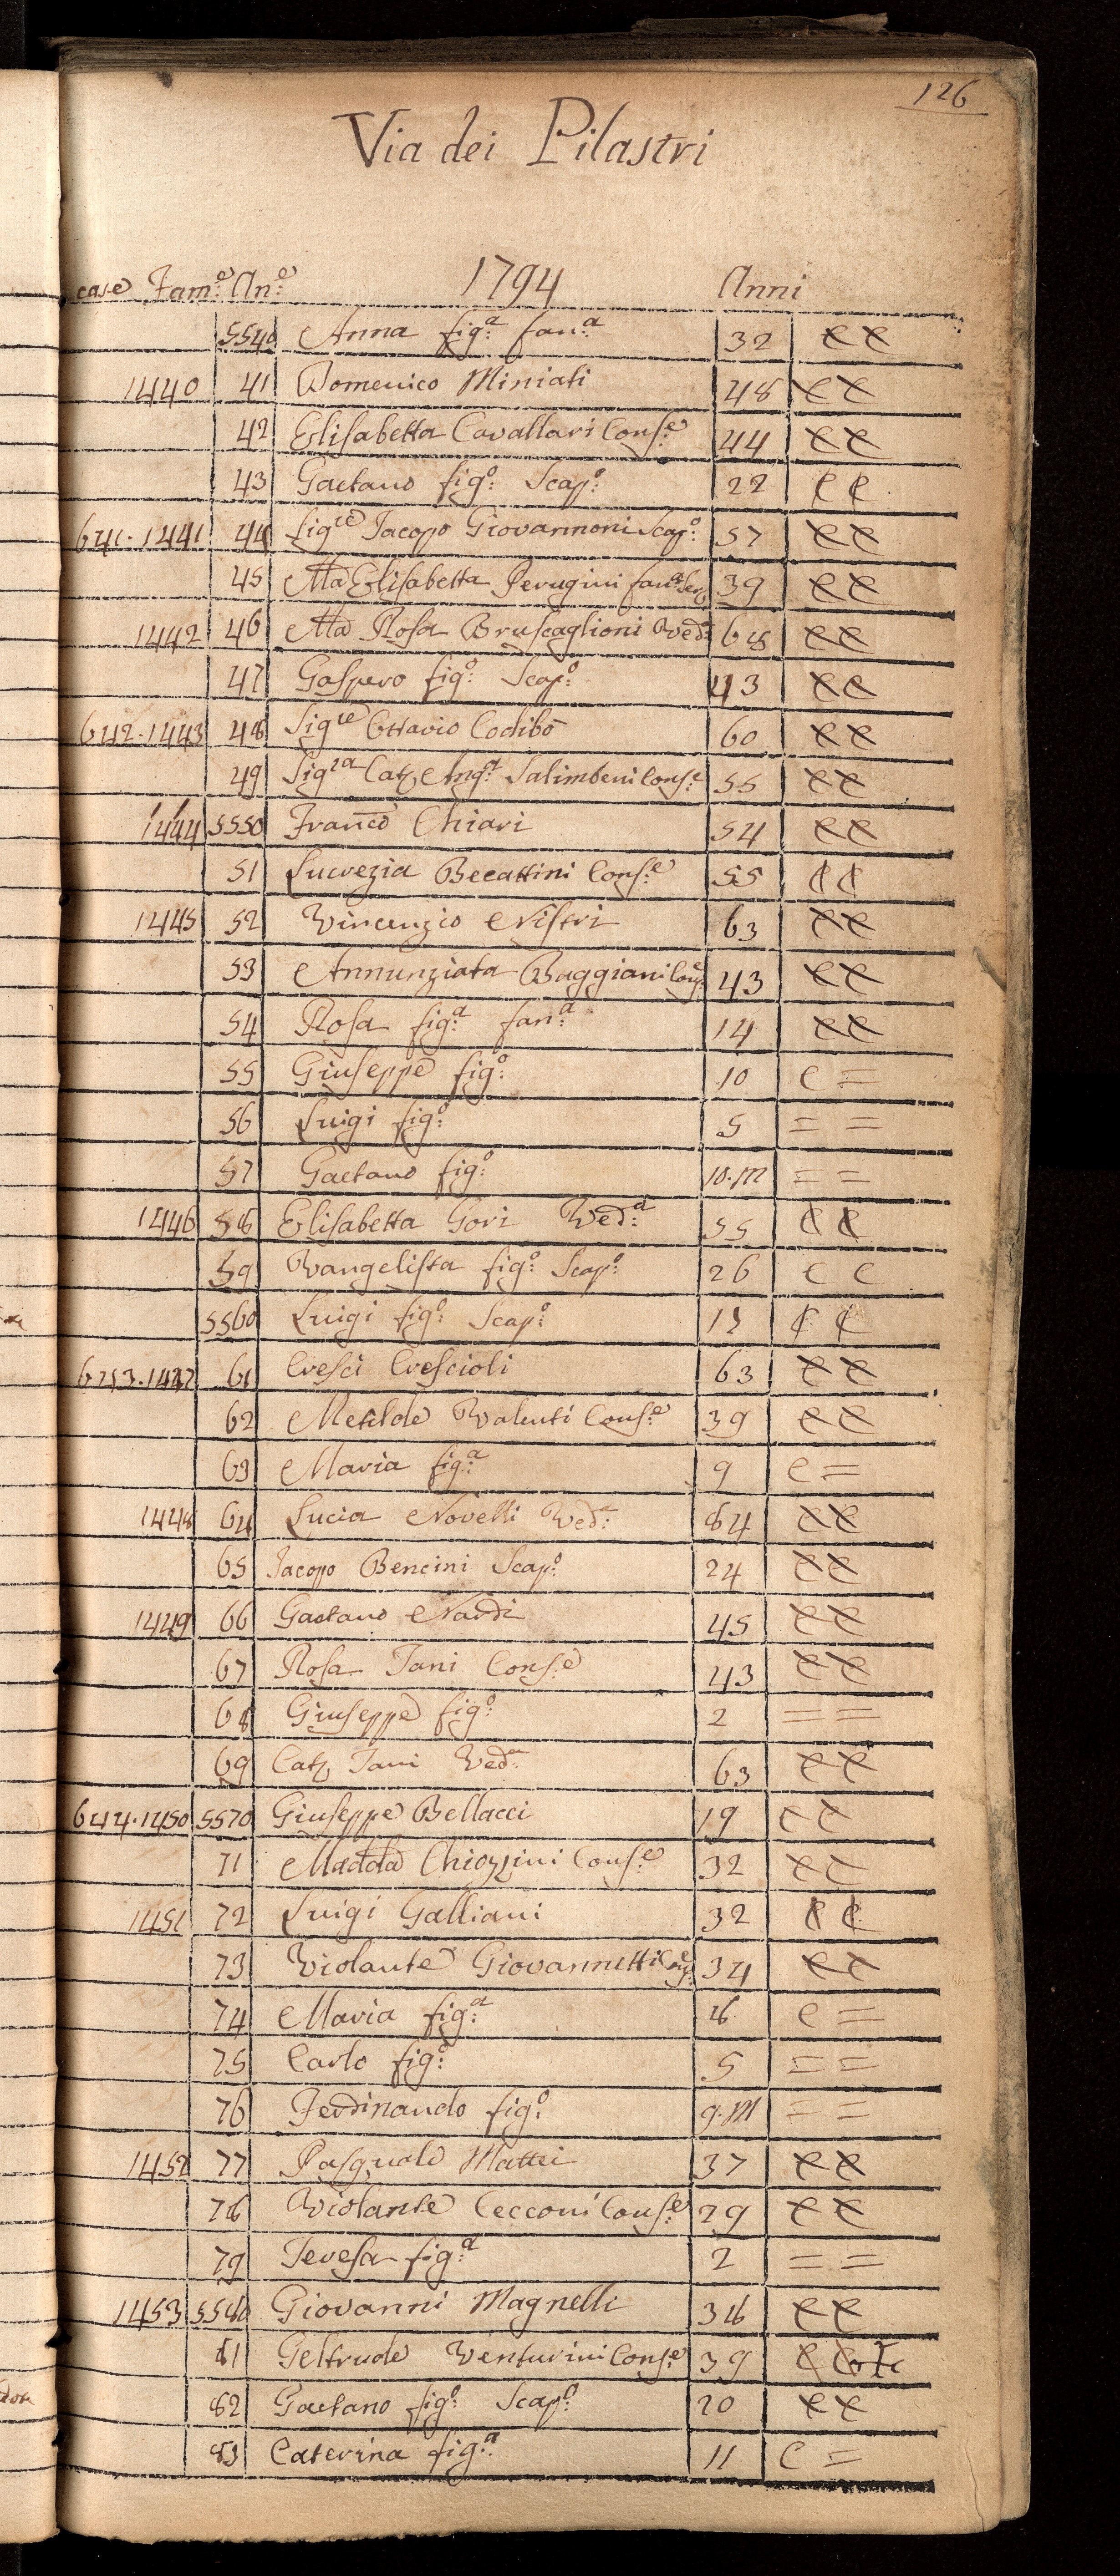 126
Via dei Pilastri
case Fam:e An:e 1794 Anni
5540 Anna fig:a fan:a 32 CC
1440 41 Domenico Miniati 48 CC
42 Elisabetta Cavallari Cons:e 44 CC
43 Gaetano fig:o Scap:o 22 CC
641.1441 44 Sig:re Jacopo Giovannoni Scap:o 57 CC
45 Ma Elisabetta Perugini fan:a Ser: 39 CC
1442 46 Ma Rosa Bruscaglioni Ved:a 68 CC
47 Gaspero fig:o Scap:o 43 CC
642.1443 48 Sig:re Ottavio Codibò 60 CC
49 Sig:ra Cat: Ang:a Salimbeni Cons:e 55 CC
1444 5550 Franco Chiari 54 CC
51 Lucrezia Becattini Cons:e 55 CC
1445 52 Vincenzio Nistri 63 CC
53 Annunziata Baggiani Cons:e 43 CC
54 Rosa fig:a fan:a 14 CC
55 Giuseppe fig:o 10 C =
56 Luigi fig:o 5 = =
57 Gaetano fig:o 10.M = =
1446 58 Elisabetta Gori Ved:a 55 CC
59 Vangelista fig:o Scap:o 26 C C
5560 Luigi fig:o Scap:o CC
643.1447 61 Cresci Crescioli 63 CC
62 Metilde Valenti Cons:e 39 CC
63 Maria fig:a 9 C =
1448 64 Lucia Novelli Ved:a 84 CC
65 Jacopo Bencini Scap:o 24 CC
1449 66 Gaetano Nardi 45 CC
67 Rosa Tani Cons:e 43 CC
68 Giuseppe fig:o 2 = =
69 Cat: Tani Ved:a 63 CC
644.1450 5570 Giuseppe Bellacci 19 CC
71 Madda Chiozzini Cons:e 32 CC
1451 72 Luigi Galliani 32 CC
73 Violante Giovannetti Cons:e 34 CC
74 Maria fig:a 8 C =
75 Carlo fig:o 5 = =
76 Ferdinando fig:o 9.M = =
1452 77 Pasquale Mattei 37 CC
78 Violante Cecconi Cons:e 29 CC
79 Teresa fig:a 2 = =
1453 5580 Giovanni Magnelli 38 CC
81 Geltrude Venturini Cons:e 39 C
82 Gaetano fig:o Scap:o 20 CC
83 Caterina fig:a 11 C =